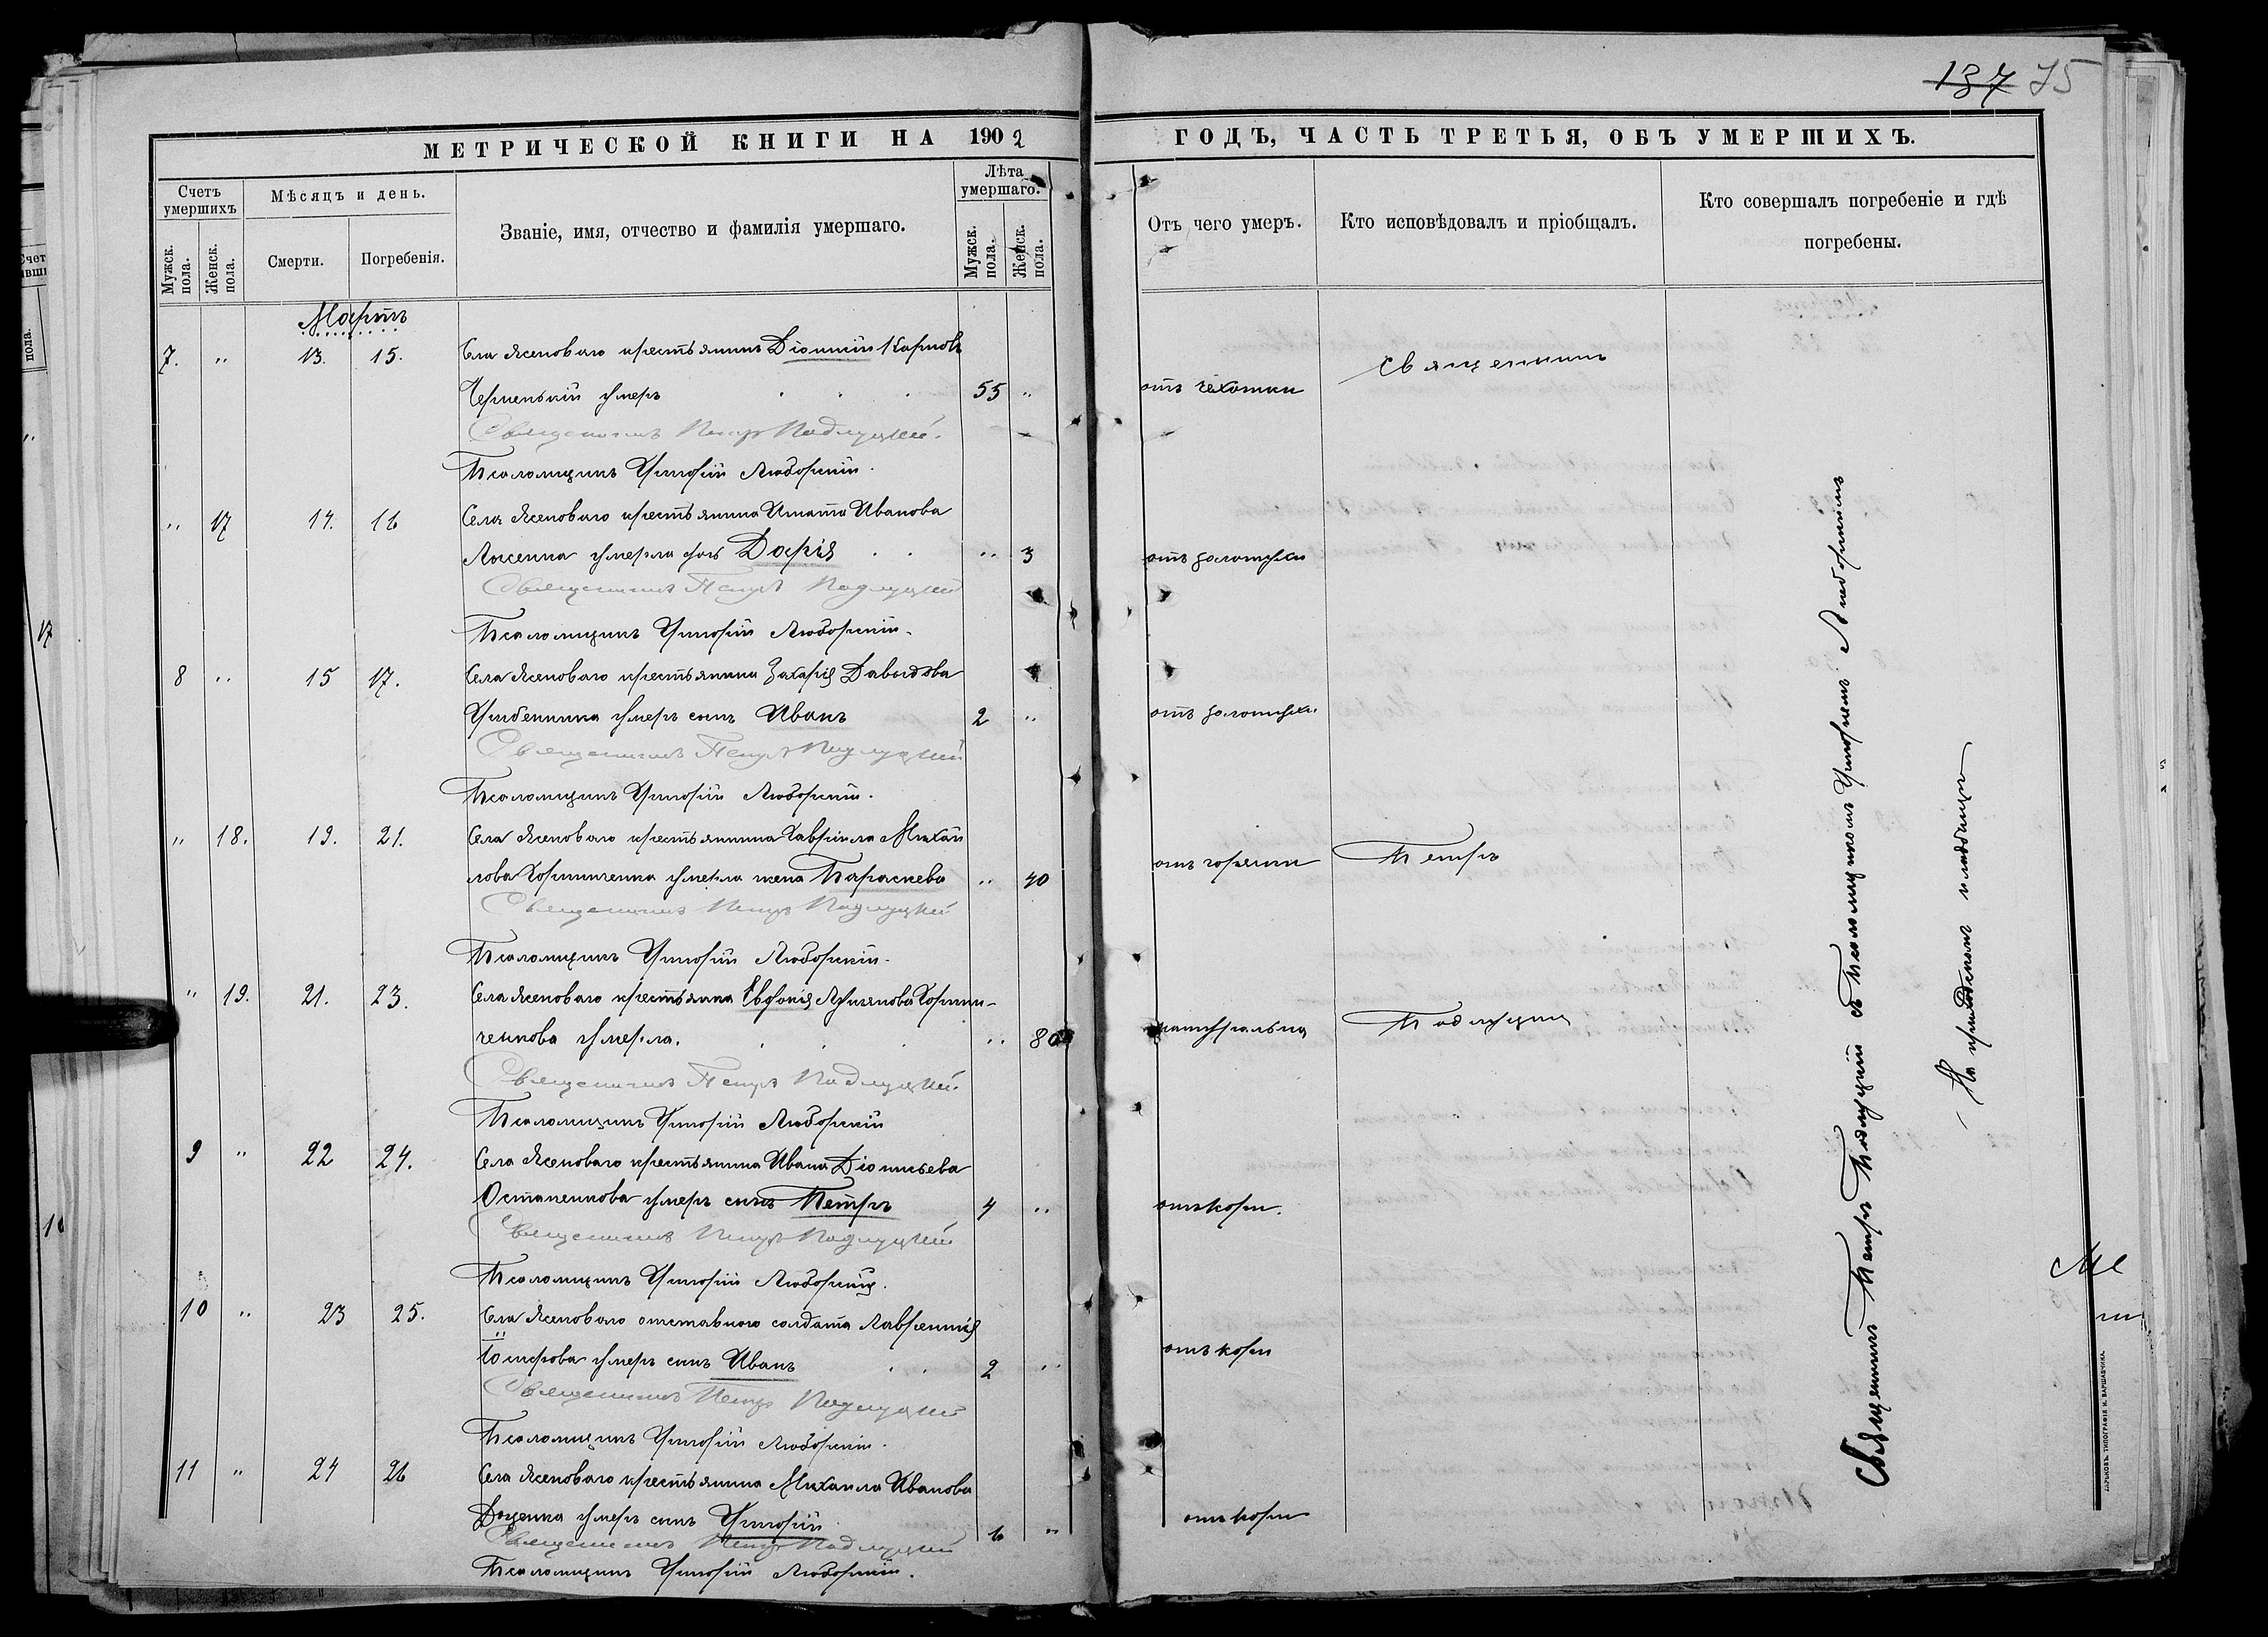 137 75
МЕТРИЧЕСКОЙ КНИГИ НА 1902
ГОДЪ, ЧАСТЬ ТРЕТЬЯ, ОБЪ УМЕРШИХЪ.
Счетъ умершихъ
Мѣсяцъ и день.
Званіе, имя, отчество и фамилія умершаго.
Лѣта умершаго.
Мужск. пола.
Женск. пола.
Смерти.
Погребенія.
Мужск. пола.
Женск. пола.
Отъ чего умеръ.
Кто исповѣдовалъ и пріобщалъ.
Кто совершалъ погребеніе и гдѣ погребены.
Мартъ
7. " 13. 15. Села Ясеноваго крестьянинъ Діонисій Карповъ
Черненькій умеръ 55 " отъ чахотки Священникъ
Священникъ Петръ Подлуцкій.
Псаломщикъ Григорій Любарскій.
" 17 14. 16 Села Ясеноваго крестьянина Игната Иванова
умерла дочь Дарія " 3 отъ золотухи
Священникъ Петръ Подлуцкій
Псаломщикъ Григорій Любарскій.
8 " 15 17. Села Ясеноваго крестьянина Захарія Давыдова
умеръ сынъ Иванъ 2 " отъ золотухи
Священникъ Петръ Подлуцкій
Псаломщикъ Григорій Любарскій.
" 18. 19. 21. Села Ясеноваго крестьянина Гавріила Михай
лова умерла жена Параскева " 40 отъ горячки Петръ
Священникъ Петръ Подлуцкій
Псаломщикъ Григорій Любарскій.
" 19. 21. 23. Села Ясеноваго крестьянка
умерла. " 80 натуральна Подлуцкій
Священникъ Петръ Подлуцкій.
Псаломщикъ Григорій Любарскій
9 " 22 24. Села Ясеноваго крестьянина Ивана Діонисьева
Остапенкова умеръ сынъ Петръ 4 " отъ кори.
Священникъ Петръ Подлуцкій
Псаломщикъ Григорій Любарскій.
10 " 23 25. Села Ясеноваго отставного солдата Лаврентія
умеръ сынъ Иванъ 2 " отъ кори
Священникъ Петръ Подлуцкій
Псаломщикъ Григорій Любарскій.
11 " 24 26 Села Ясеноваго крестьянина Михаила Иванова
Доценка умеръ сынъ Григорій 6 " отъ кори
Священникъ Петръ Подлуцкій
Псаломщикъ Григорій Любарскій.
Священникъ Петръ Подлуцкій съ Псаломщикомъ Григоріемъ Любарскимъ
На приходскомъ кладбищѣ
ХАРЬКОВЪ. ТИПОГРАФІЯ И. ВАРШАВЧИКА.